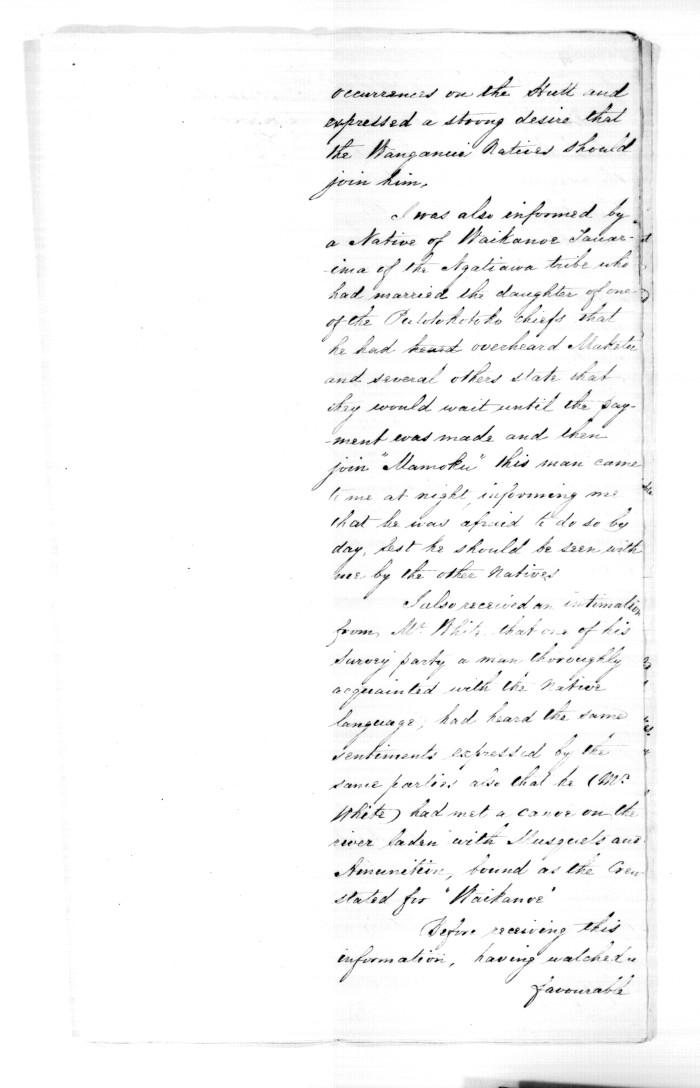 occurrences on the Hutt and
expressed a strong desire that
the Wanganui Natives should
join him.
I was also informed by
a Native of Waikanoe Tauar-
-ima of the Ngatiawa tribe who
had married the daughter of one
of the Putotokotoko chiefs that
he had heard overheard Maketu
and several others state that
they would wait until the pay-
-ment was made and then
join "Mamoku" this man came
to me at night, informing me
that he was afraid to do so by
day, lest he should be seen with
me by the other Natives
I also received an intimation
from Mr. White that one of his
survey party a man thoroughly
acquainted with the Native
language, had heard the same
sentiments expressed by the
same parties also that he (Mr.
White) had met a canoe on the
river laden with Musquets and
Amunition, bound as the Crew
stated for "Waikanoe"
Before receiving this
information, having watched a
favourable